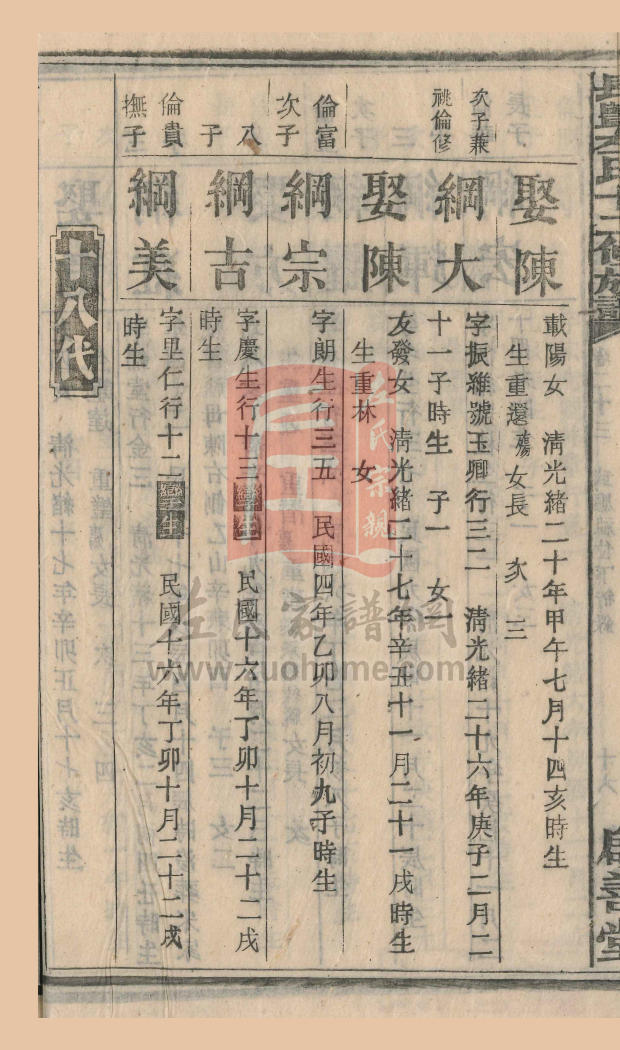 長豐左氏十二修族譜
啟善堂
娶陳
載陽女 清光緒二十年甲午七月十四亥時生
生重還殤女長 次 三
次子兼
祧倫修
綱大
字振維號玉卿行三二 清光緒二十六年庚子二月二
十一子時生 子一 女一
娶陳
友發女 清光緒二十七年辛丑十一月二十一戌時生
生重林 女
倫富
次子
綱宗
字朗生行三五 民國四年乙卯八月初九子時生
八
子
綱吉
字慶生行十三孿生 民國十六年丁卯十月二十二戌
時生
倫貴
撫子
綱美
字里仁行十二孿生 民國十六年丁卯十月二十二戌
時生
十八代
左氏宗親
左氏家譜網
www.zuohome.com